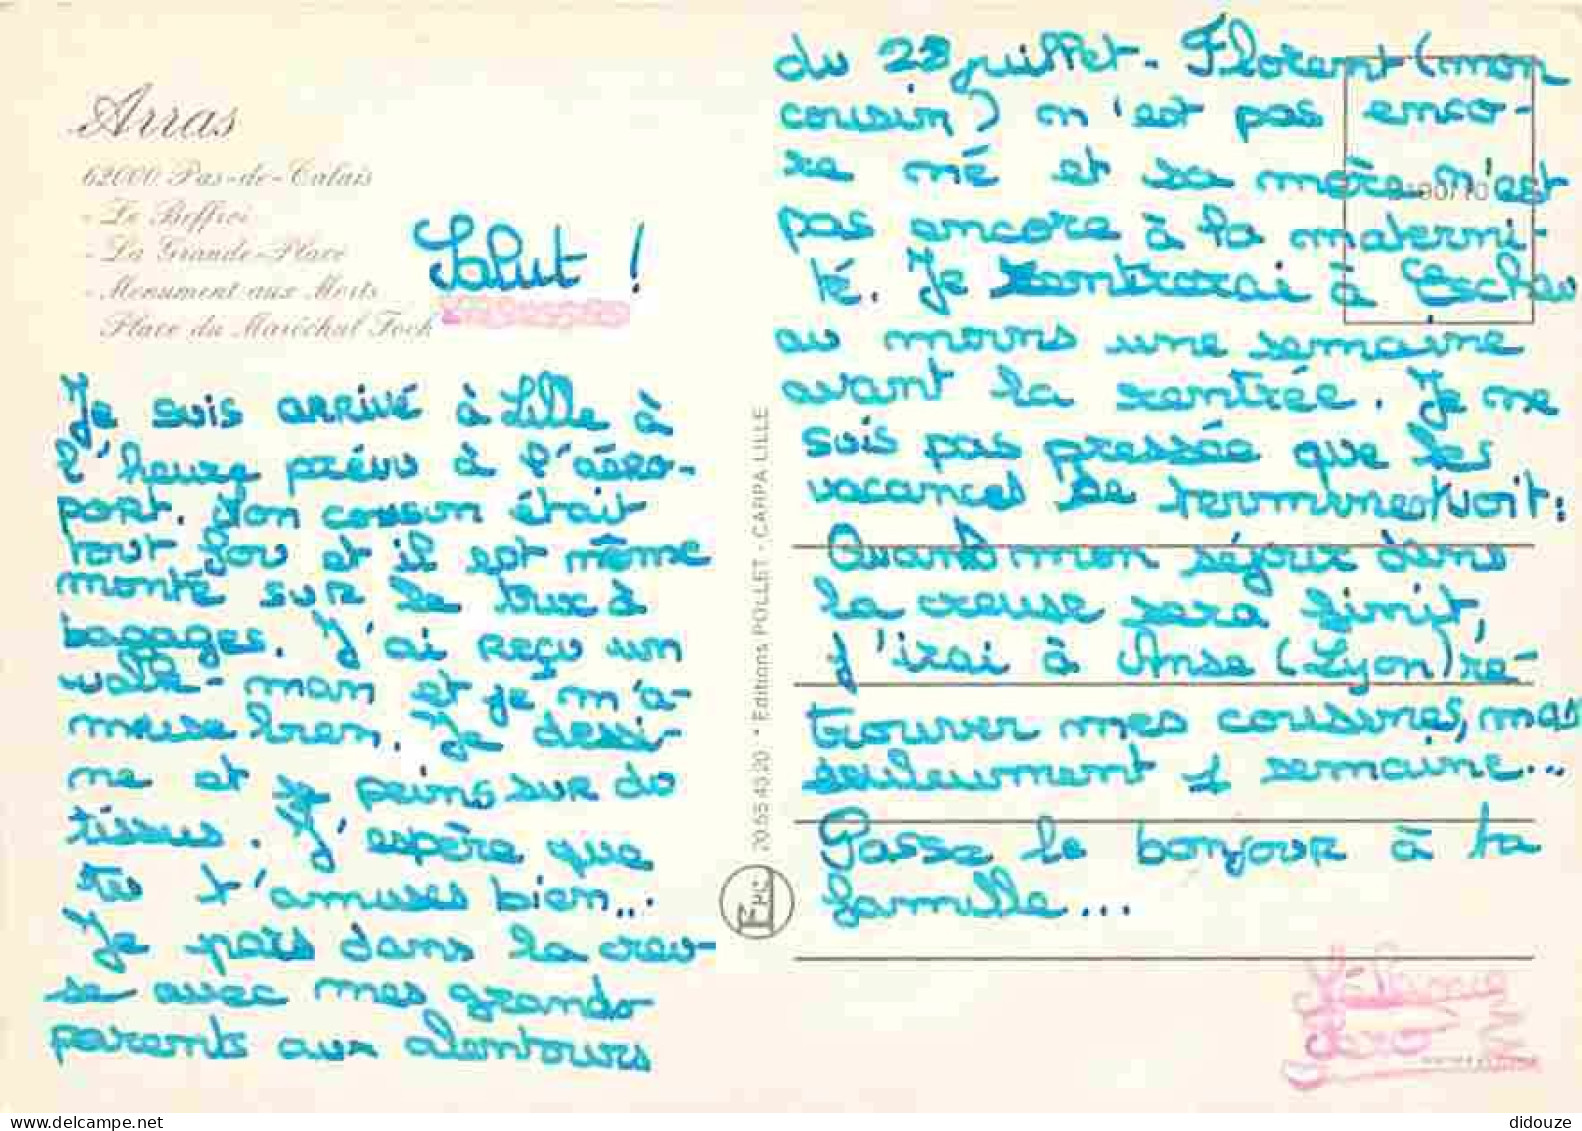 Arras
62000 Pas-de-Calais
- Le Beffroi
- La Grande-Place
- Monument aux Morts
Place du Maréchal Foch
Salut !
Je suis arrivé à Lille à
l'heure prévu à l'aéro-
port. Mon cousin était
tout fou et il est même
monté sur le tux à
bagages. J'ai reçu un
walk-man et je m'a-
muse bien. Je dessi-
ne et je peins sur du
tissus. J'espère que
tu t'amuses bien...
Je pars dans la creu-
se avec mes grands
parents aux alentours
du 28 juillet. Florent (mon
cousin) n'est pas enco-
re né et sa mère n'est
pas encore à la materni-
té. Je rentrerai à Eschau
au moins une semaine
avant la rentrée. Je ne
suis pas pressée que les
vacances se terminest voit:
Quand mon séjour dans
la creuse sera finit,
j'irai à Anse (Lyon) re-
trouver mes cousines, mais
seuleument 1 semaine...
Passe le bonjour à ta
famille...
20.55.43.20 * Editions POLLET - CARPA LILLE
EPIC
didouze